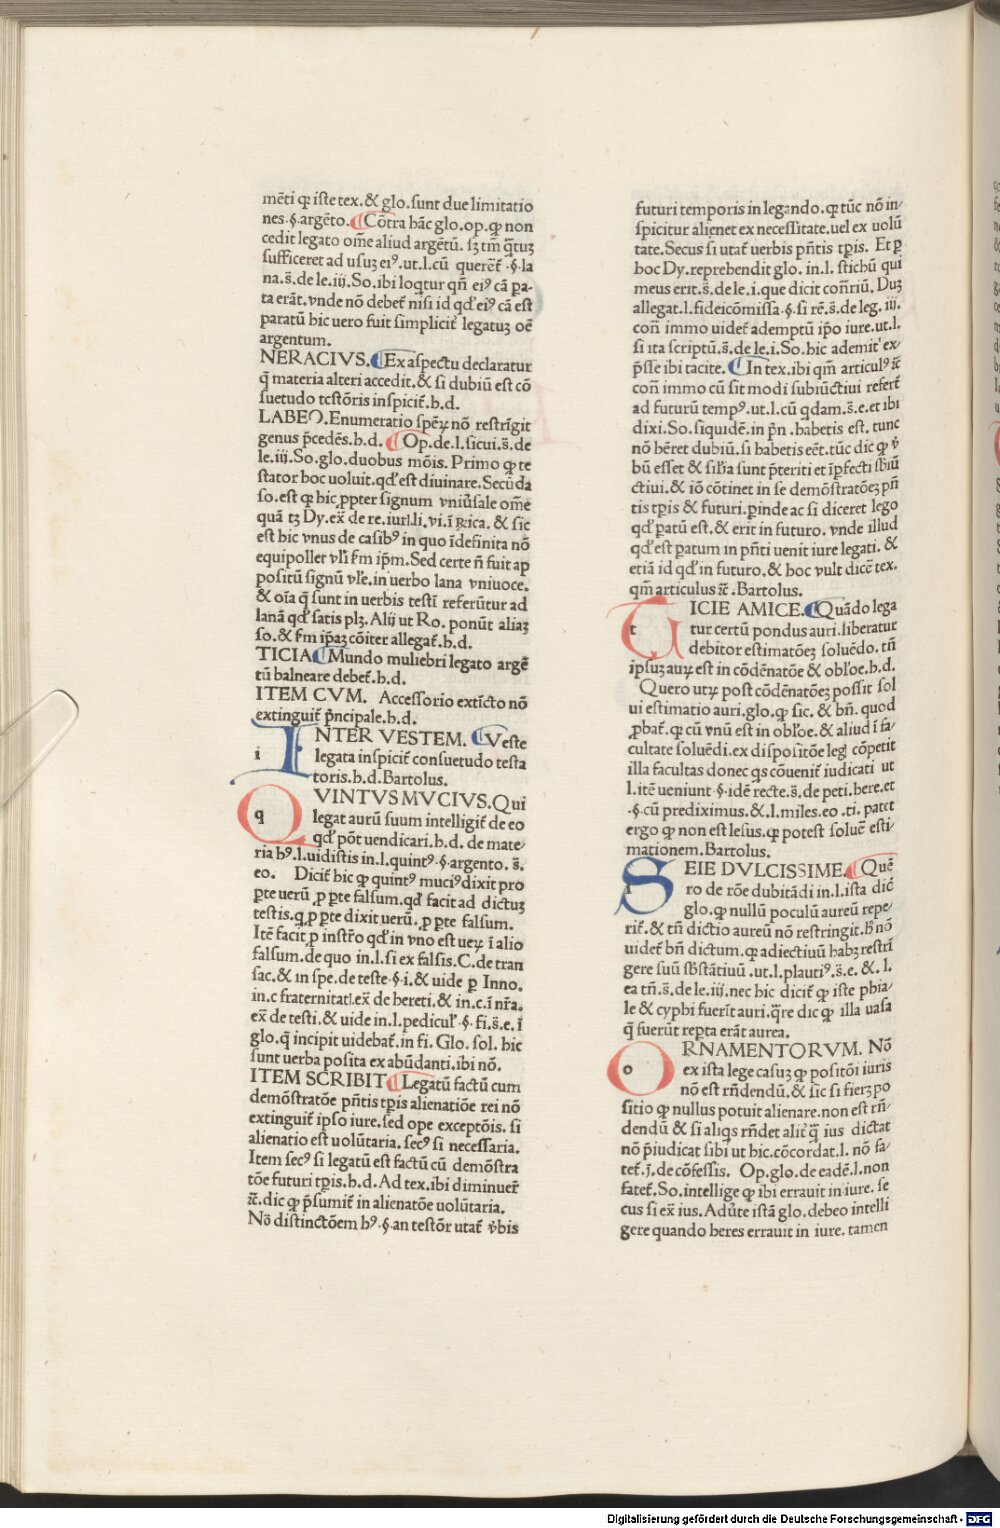 mēti qꝫ iste tex.& glo.sunt due limitatio
nes.§.argēto.¶Cōtra hāc glo.op.qꝫ non
cedit legato om̄e aliud argētū. sꝫ tm̄ q̄tuꝫ
sufficeret ad usuꝫ eiꝰ.ut.l.cū querēt᷑.§.la
na.s̄.de le.iij.So.ibi loq̄tur qn̄ eiꝰ cā pa-
ta erāt.vnde nō debet᷑ nisi id qd́ eiꝰ cā est
paratū hic uero fuit simplicit᷑ legatuꝫ oē
argentum.
NERACIVS.¶Ex aspectu declaratur
q̄ materia alteri accedit.& si dubiū est cō
suetudo testōris inspicit᷑.h.d.
LABEO.Enumeratio spēꝝ nō restrīgit
genus p̄cedēs.h.d. ¶Op.de.l.sicui.s̄.de
le.iij.So.glo.duobus mōis. Primo qꝫ te
stator hoc uoluit.qd́ est diuinare. Secūda
so.est qꝫ hic ꝓpter signum vniūsale om̄e
quā tꝫ Dy.ex̄ de re.iur.li.vi.ī ꝶica. & sic
est hic vnus de casibꝰ in quo īdefinita nō
equipollet vl̄i s̄m ip̄m. Sed certe n̄ fuit ap
positū signū vl̄e.in uerbo lana vniuoce.
& oīa q̄ sunt in uerbis testī referūtur ad
lanā qd́ satis plꝫ. Alij ut Ro. ponūt aliaꝫ
so.& s̄m ip̄aꝫ cōiter allegat᷑.h.d.
TICIA¶Mundo muliebri legato argē
tū balneare debet᷑.h.d.
ITEM CVM. Accessorio extīcto nō
extinguit᷑ p̄ncipale.h.d.
i INTER VESTEM. ¶Veste
legata inspicit᷑ consuetudo testa
toris.h.d.Bartolus.
q QVINTVS MVCIVS.Qui
legat aurū suum intelligit᷑ de eo
qd́ pōt uendicari.h.d. de mate-
ria hꝰ.l.uidistis in.l.quintꝰ.§.argento. s̄.
eo. Dicit᷑ hic qꝫ quintꝰ muciꝰ dixit pro
ꝑte uerū ꝓ ꝑte falsum.qd́ facit ad dictuꝫ
testis.q̨ ꝓ ꝑte dixit uerū.ꝓ ꝑte falsum.
Itē facit ꝓ instr̄o qd́ in vno est ueꝝ ī alio
falsum.de quo in.l.si ex falsis.C.de tran
sac.& in spe.de teste.§.i.& uide ꝑ Inno.
in.c fraternitatī.ex̄ de hereti.& in.c.ī nr̄a.
ex̄ de testi.& uide in.l.pediculꝰ.§.fi.s̄.e.ī
glo.q̄ incipit uidebat᷑.in fi. Glo. sol. hic
sunt uerba posita ex abūdanti.ibi nō.
ITEM SCRIBIT ¶Legatū factū cum
demōstratōe pn̄tis tp̄is alienatiōe rei nō
extinguit᷑ ipso iure.sed ope exceptōis. si
alienatio est uolūtaria. secꝰ si necessaria.
Item secꝰ si legatū est factū cū demōstra
tōe futuri tp̄is.h.d. Ad tex.ibi diminuer̄
⁊c̄.dic qꝫ p̄sumit᷑ in alienatōe uolūtaria.
Nō distinctōem hꝰ.§.an testōr utat᷑ v̄bis
futuri temporis in legando.qꝫ tūc nō in-
spicitur alienet ex necessitate.uel ex uolū
tate. Secus si utat᷑ uerbis pn̄tis tp̄is. Et ꝑ
hoc Dy.reprehendit glo. in.l. stichū qui
meus erit.s̄.de le.i.que dicit con̄riū. Duꝫ
allegat.l.fideicōmissa.§.si rē.s̄.de leg. iij.
con̄ immo uidet᷑ ademptū ip̄o iure.ut.l.
si ita scriptū.s̄.de le.i.So.hic ademit ex-
p̄sse ibi tacite. ¶In tex.ibi qm̄ articulꝰ ⁊c̄
con̄ immo cū sit modi subiūctiui refert᷑
ad futurū tempꝰ.ut.l.cū q̄dam.s̄.e.et ibi
dixi. So.siquidē.in p̄n .habetis est. tunc
nō hēret dubiū.si habetis eēt.tūc dic qꝫ v̄
bū esset & sil̄ia sunt p̄teriti et īp̄fecti sb̄iū
ctiui.& iō cōtinet in se demōstratōeꝫ pn̄
tis tp̄is & futuri.ꝓinde ac si diceret lego
qd́ ꝑatū est.& erit in futuro. vnde illud
qd́ est ꝑatum in pn̄ti uenit iure legati. &
etiā id qd́ in futuro.& hoc vult dicē tex.
qm̄ articulus ⁊c̄ .Bartolus.
t TICIE AMICE.¶Quādo lega
tur certū pondus auri.liberatur
debitor estimatōeꝫ soluēdo. tn̄
ipsuꝫ auꝝ est in cōdēnatōe & obl̄oe.h.d.
Quero utꝝ post cōdēnatōeꝫ possit sol
ui estimatio auri.glo.qꝫ sic. & bn̄. quod
ꝓbat᷑.qꝫ cū vnū est in obl̄oe.& aliud ī fa-
cultate soluēdi.ex dispositōe legī cōpetit
illa facultas donec q̨s cōuenit᷑ iudicati ut
l.itē ueniunt.§.idē recte.s̄.de peti.here.et
.§.cū prediximus.&.l.miles.eo .ti. patet
ergo qꝫ non est lesus.qꝫ potest soluē esti-
mationem.Bartolus.
SEIE DVLCISSIME.¶Quē
ro de rōe dubitādi in.l.ista dic̄
glo.qꝫ nullū poculū aureū repe-
rit᷑.& tn̄ dictio aureū nō restringit.Hꝰ nō
uidet᷑ bn̄ dictum.qꝫ adiectiuū habꝫ restrī
gere suū sb̄stātiuū .ut.l.plautiꝰ.s̄.e. &. l.
ea tn̄.s̄.de le.iij.nec hic dicit᷑ qꝫ iste phia-
le & cyphi fuerīt auri.q̄re dic qꝫ illa uasa
q̄ fuerūt reꝑta erāt aurea.
o ORNAMENTORVM. Nō
ex ista lege casuꝫ qꝫ positōi iuris
nō est rn̄dendū.& sic si fierꝫ po
sitio qꝫ nullus potuit alienare.non est rn̄-
dendū & si aliq̨s rn̄det alit᷑ q̄ ius dictat
nō p̄iudicat sibi ut hic.cōcordat.l. nō fa-
tet᷑.j̄.de cōfessis. Op.glo.de eadē.l.non
fatet᷑.So.intellige qꝫ ibi errauit in iure. se
cus si ex̄ ius. Adūte istā glo.debeo intelli
gere quando heres errauit in iure. tamen
Digitalisierung gefördert durch die Deutsche Forschungsgemeinschaft - DFG